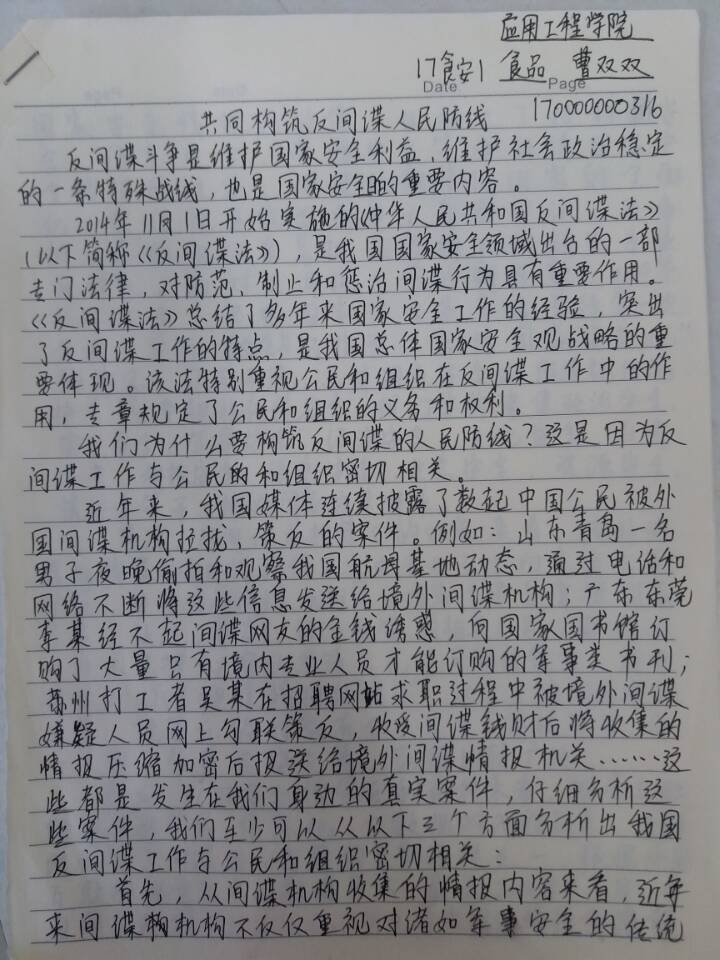 应用工程学院
17食安1 食品 曹双双
Date Page
共同构筑反间谍人民防线 170000000316
反间谍斗争是维护国家安全利益、维护社会政治稳定
的一条特殊战线，也是国家安全的重要内容。
2014年11月1日开始实施的《中华人民共和国反间谍法》
（以下简称《反间谍法》），是我国国家安全领域出台的一部
专门法律，对防范、制止和惩治间谍行为具有重要作用。
《反间谍法》总结了多年来国家安全工作的经验，突出
了反间谍工作的特点，是我国总体国家安全观战略的重
要体现。该法特别重视公民和组织在反间谍工作中的作
用，专章规定了公民和组织的义务和权利。
我们为什么要构筑反间谍的人民防线？这是因为反
间谍工作与公民的和组织密切相关。
近年来，我国媒体连续披露了数起中国公民被外
国间谍机构拉拢、策反的案件。例如：山东青岛一名
男子夜晚偷拍和观察我国航母基地动态，通过电话和
网络不断将这些信息发送给境外间谍机构；广东东莞
李某经不起间谍网友的金钱诱惑，向国家图书馆订
购了大量只有境内专业人员才能订购的军事类书刊；
苏州打工者吴某在招聘网站求职过程中被境外间谍
嫌疑人员网上勾联策反，收受间谍钱财后将收集的
情报压缩加密后报送给境外间谍情报机关……这
些都是发生在我们身边的真实案件，仔细分析这
些案件，我们至少可以从以下三个方面分析出我国
反间谍工作与公民和组织密切相关：
首先，从间谍机构收集的情报内容来看，近年
来间谍机构不仅仅重视对诸如军事安全的传统